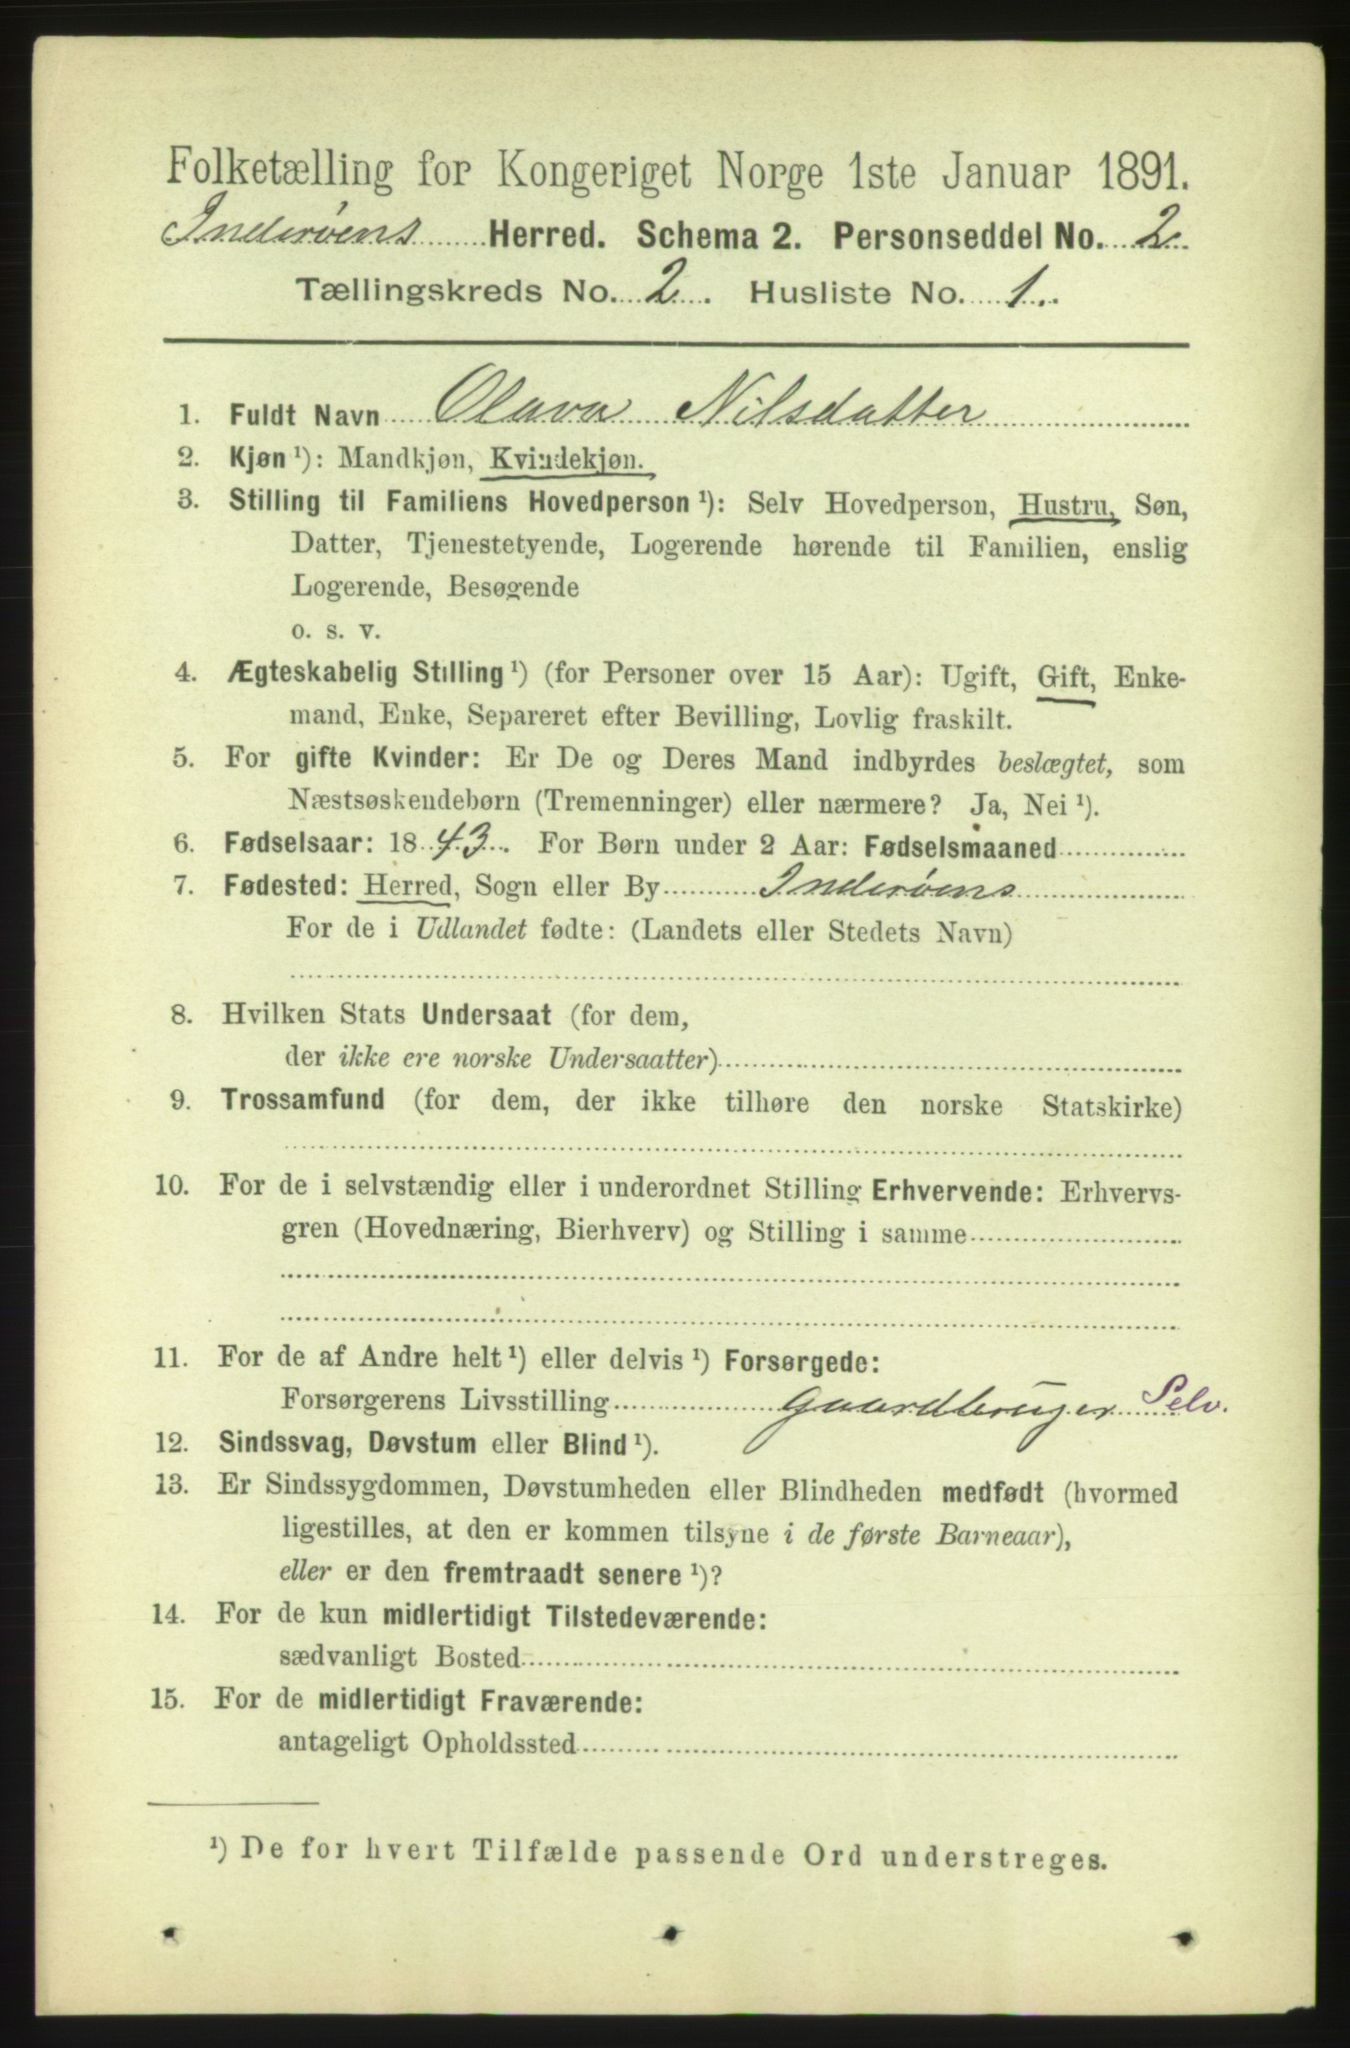 Folketælling for Kongeriget Norge 1ste Januar 1891.
Inderøens Herred. Schema 2. Personseddel No. 2.
Tællingskreds No. 2. Husliste No. 1.
1. Fuldt Navn Olava Nilsdatter
2. Kjøn ¹): Mandkjøn, Kvindekjøn.
3. Stilling til Familiens Hovedperson ¹): Selv Hovedperson, Hustru, Søn,
Datter, Tjenestetyende, Logerende hørende til Familien, enslig
Logerende, Besøgende
o. s. v.
4. Ægteskabelig Stilling ¹) (for Personer over 15 Aar): Ugift, Gift, Enke-
mand, Enke, Separeret efter Bevilling, Lovlig fraskilt.
5. For gifte Kvinder: Er De og Deres Mand indbyrdes beslægtet, som
Næstsøskendebørn (Tremenninger) eller nærmere? Ja, Nei ¹).
6. Fødselsaar: 1843. For Børn under 2 Aar: Fødselsmaaned
7. Fødested: Herred, Sogn eller By Inderøens
For de i Udlandet fødte: (Landets eller Stedets Navn)
8. Hvilken Stats Undersaat (for dem,
der ikke ere norske Undersaatter)
9. Trossamfund (for dem, der ikke tilhøre den norske Statskirke)
10. For de i selvstændig eller i underordnet Stilling Erhvervende: Erhvervs-
gren (Hovednæring, Bierhverv) og Stilling i samme
11. For de af Andre helt ¹) eller delvis ¹) Forsørgede:
Forsørgerens Livsstilling Gaardbruger Selv.
12. Sindssvag, Døvstum eller Blind ¹).
13. Er Sindssygdommen, Døvstumheden eller Blindheden medfødt (hvormed
ligestilles, at den er kommen tilsyne i de første Barneaar),
eller er den fremtraadt senere ¹)?
14. For de kun midlertidigt Tilstedeværende:
sædvanligt Bosted
15. For de midlertidigt Fraværende:
antageligt Opholdssted
¹) De for hvert Tilfælde passende Ord understreges.